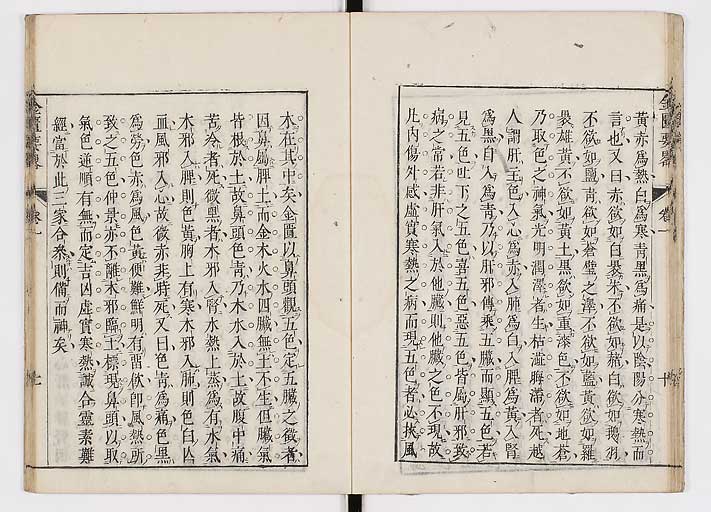 黃赤爲熱白爲寒靑黑爲痛是以陰陽分寒熱而
言也又曰赤欲如白裹朱不欲如赭白欲如鵞羽
不欲如鹽靑欲如蒼璧之澤不欲如藍黃欲如羅
裹雄黃不欲如黃土黑欲如重漆色不欲如地蒼
乃取色之神氣光明潤澤者生枯澁晦滯者死越
人謂肝主色入心爲赤入肺爲白入脾爲黃入腎
爲黑自入爲靑乃以肝邪傳乘五臟而顯五色若
見五色吐下之五色喜五色惡五色皆屬肝邪致
病之常若非肝氣入於他臟則他臟之色不現故
凡內傷外感虛實寒熱之病而現五色者必挾風
金匱要畧
卷一
十
木在其中矣金匱以鼻頭觀五色定五臟之徵者
因鼻屬脾土而金木火水四臟無土不生但臟氣
皆根於土故鼻頭色靑乃木水入於土故腹中痛
苦冷者死微黑者水邪入腎水熱上蒸爲有水氣
木邪入脾則色黃胸上有寒木邪入肺則色白亡
血風邪入心故微赤非時死又曰色靑爲痛色黑
爲勞色赤爲風色黃便難鮮明有留飮卽風熱所
致之五色仲景亦不離木邪臨土標現鼻頭以取
氣色逆順有無而定吉凶虛實寒熱誠合靈素難
經當於此三家合叅則備而神矣
金匱要畧
卷一
十